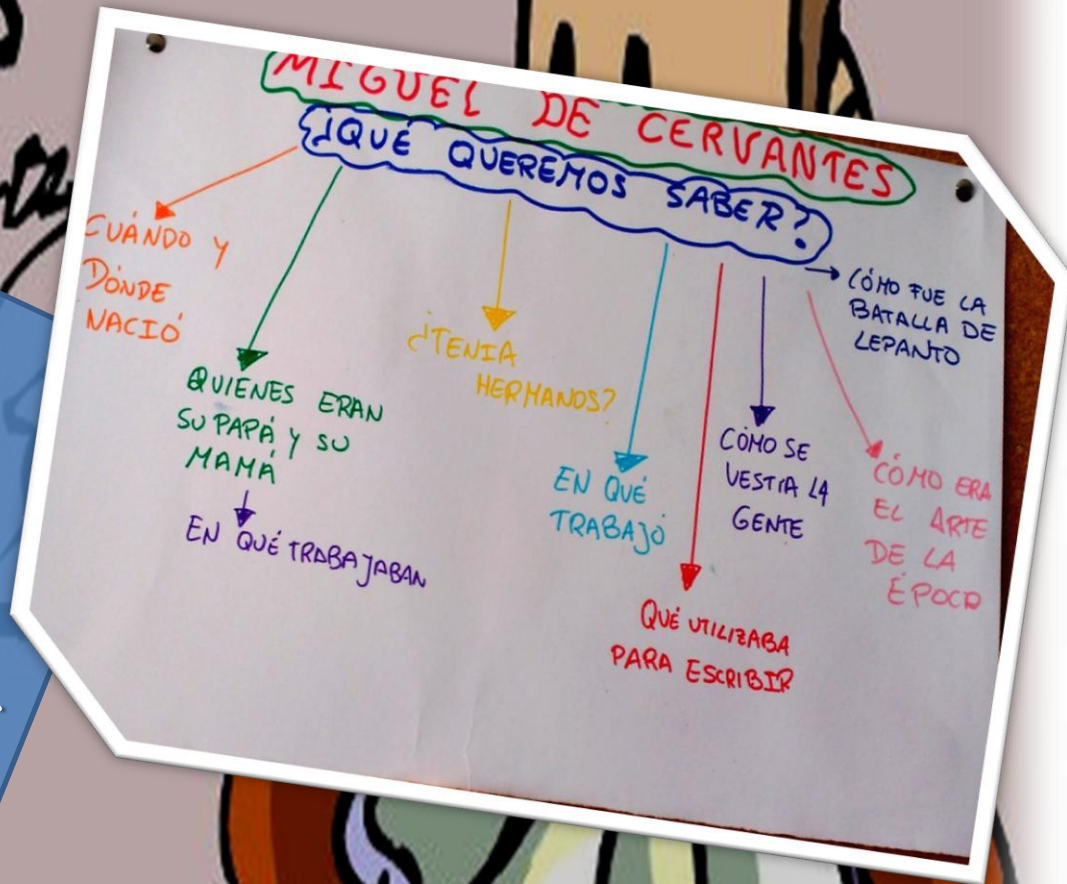 MIGUEL DE CERVANTES
¿QUÉ QUEREMOS SABER?
CUÁNDO Y
DÓNDE
NACIÓ
QUIENES ERAN
SU PAPÁ Y SU
MAMÁ
EN QUÉ TRABAJABAN
¿TENIA
HERMANOS?
EN QUÉ
TRABAJÓ
QUÉ UTILIZABA
PARA ESCRIBIR
CÓMO SE
VESTIA LA
GENTE
CÓMO ERA
EL ARTE
DE LA
ÉPOCA
CÓMO FUE LA
BATALLA DE
LEPANTO